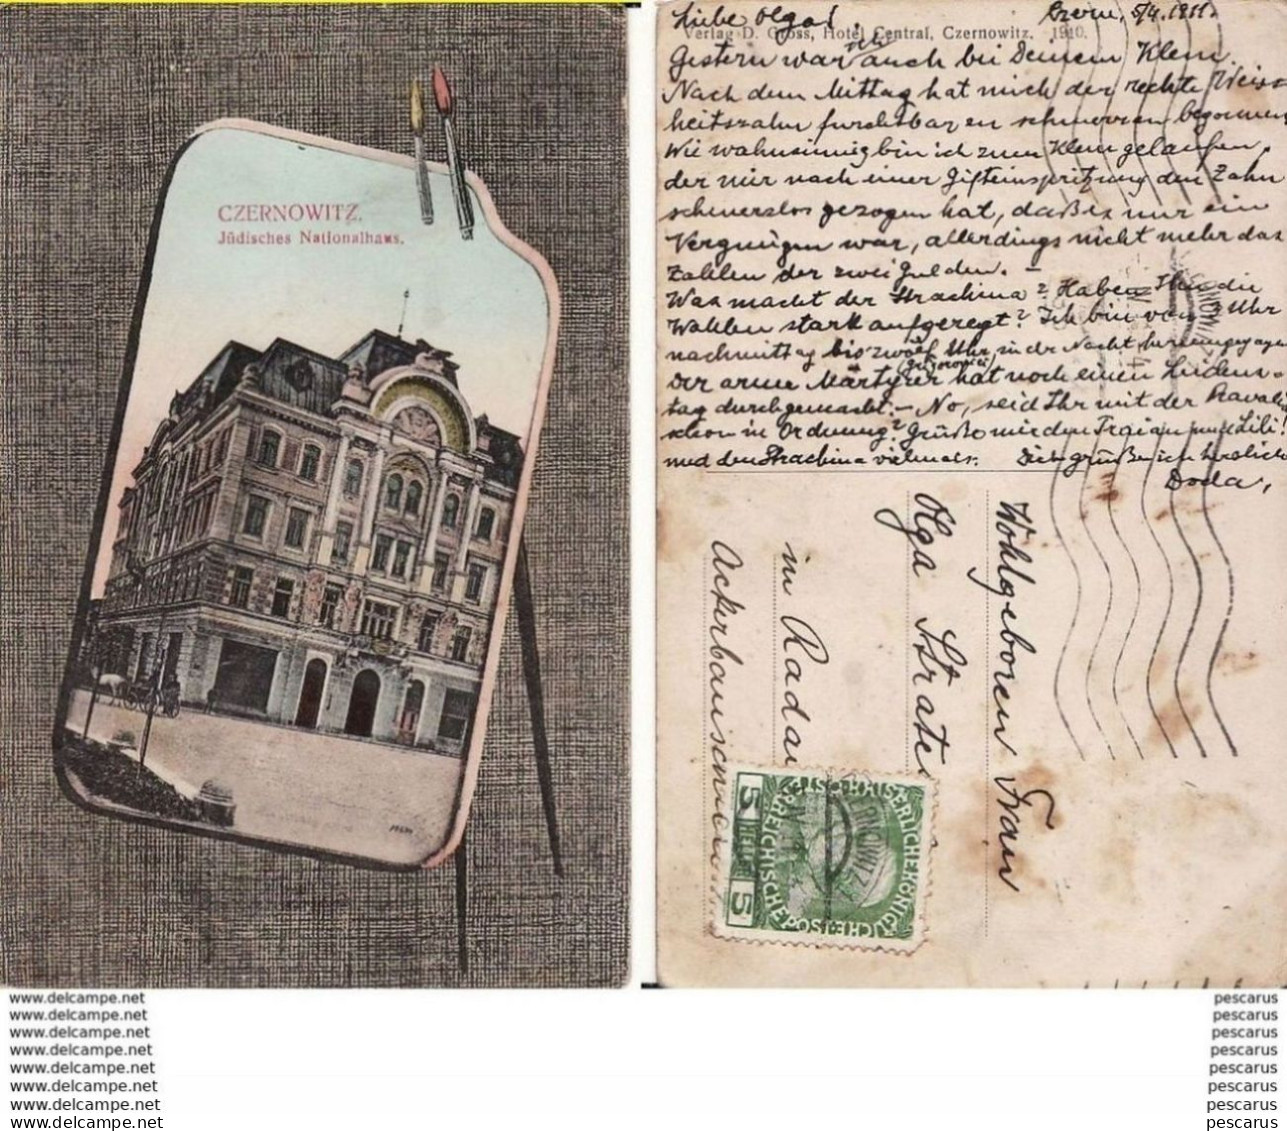 CZERNOWITZ.
Jüdisches Nationalhaus.
Liebe Olga! Czern, 5/4. 1911.
Verlag D. Gross, Hotel Central, Czernowitz. 1910.
Gestern war ich auch bei Deinem Klem.
Nach dem Mittag hat mich der rechte Weiss-
heitszahn furchtbar en schmerzen begonnen
Wie wahnsinnig bin ich zum Klem gelaufen,
der mir nach einer Gifteinspritzung den Zahn
schmerzlos gezogen hat, daß es mir ein
Vergnügen war, allerdings nicht mehr das
Zahlen der zwei Gulden. –
Was macht der Strachina? Haben Ihn die
Wahlen stark aufgeregt? Ich bin von Uhr
nachmittag bis zwölf Uhr in der Nacht herumgegangen
Der arme Märtyrer hat noch einen Leidens-
tag durchgemacht. – No, seid Ihr mit der
schon in Ordnung? Grüße mir den Traian und Lili!
und den Strachina vielmals. Dich grüße ich herzlich
Doda,
Wohlgeboren Frau
Olga
in
KAISERLICHE KÖNIGLICHE
ÖSTERREICHISCHE POST
5 5
www.delcampe.net
www.delcampe.net
www.delcampe.net
www.delcampe.net
www.delcampe.net
www.delcampe.net
www.delcampe.net
www.delcampe.net
pescarus
pescarus
pescarus
pescarus
pescarus
pescarus
pescarus
pescarus